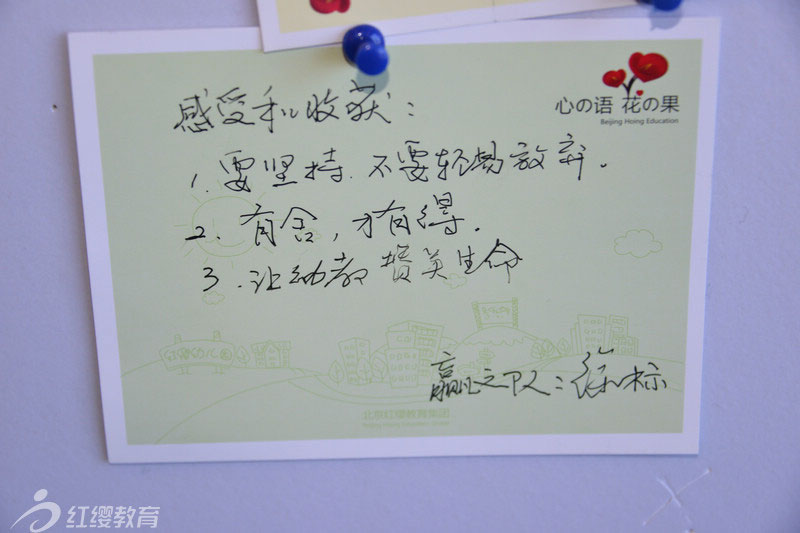 心の语 花の果
Beijing Hoing Education
感受和收获：
1.要坚持.不要轻易放弃。
2.有舍，才有得。
3.让幼教赞美生命
赢之队：徐标
北京红缨教育集团
红缨教育